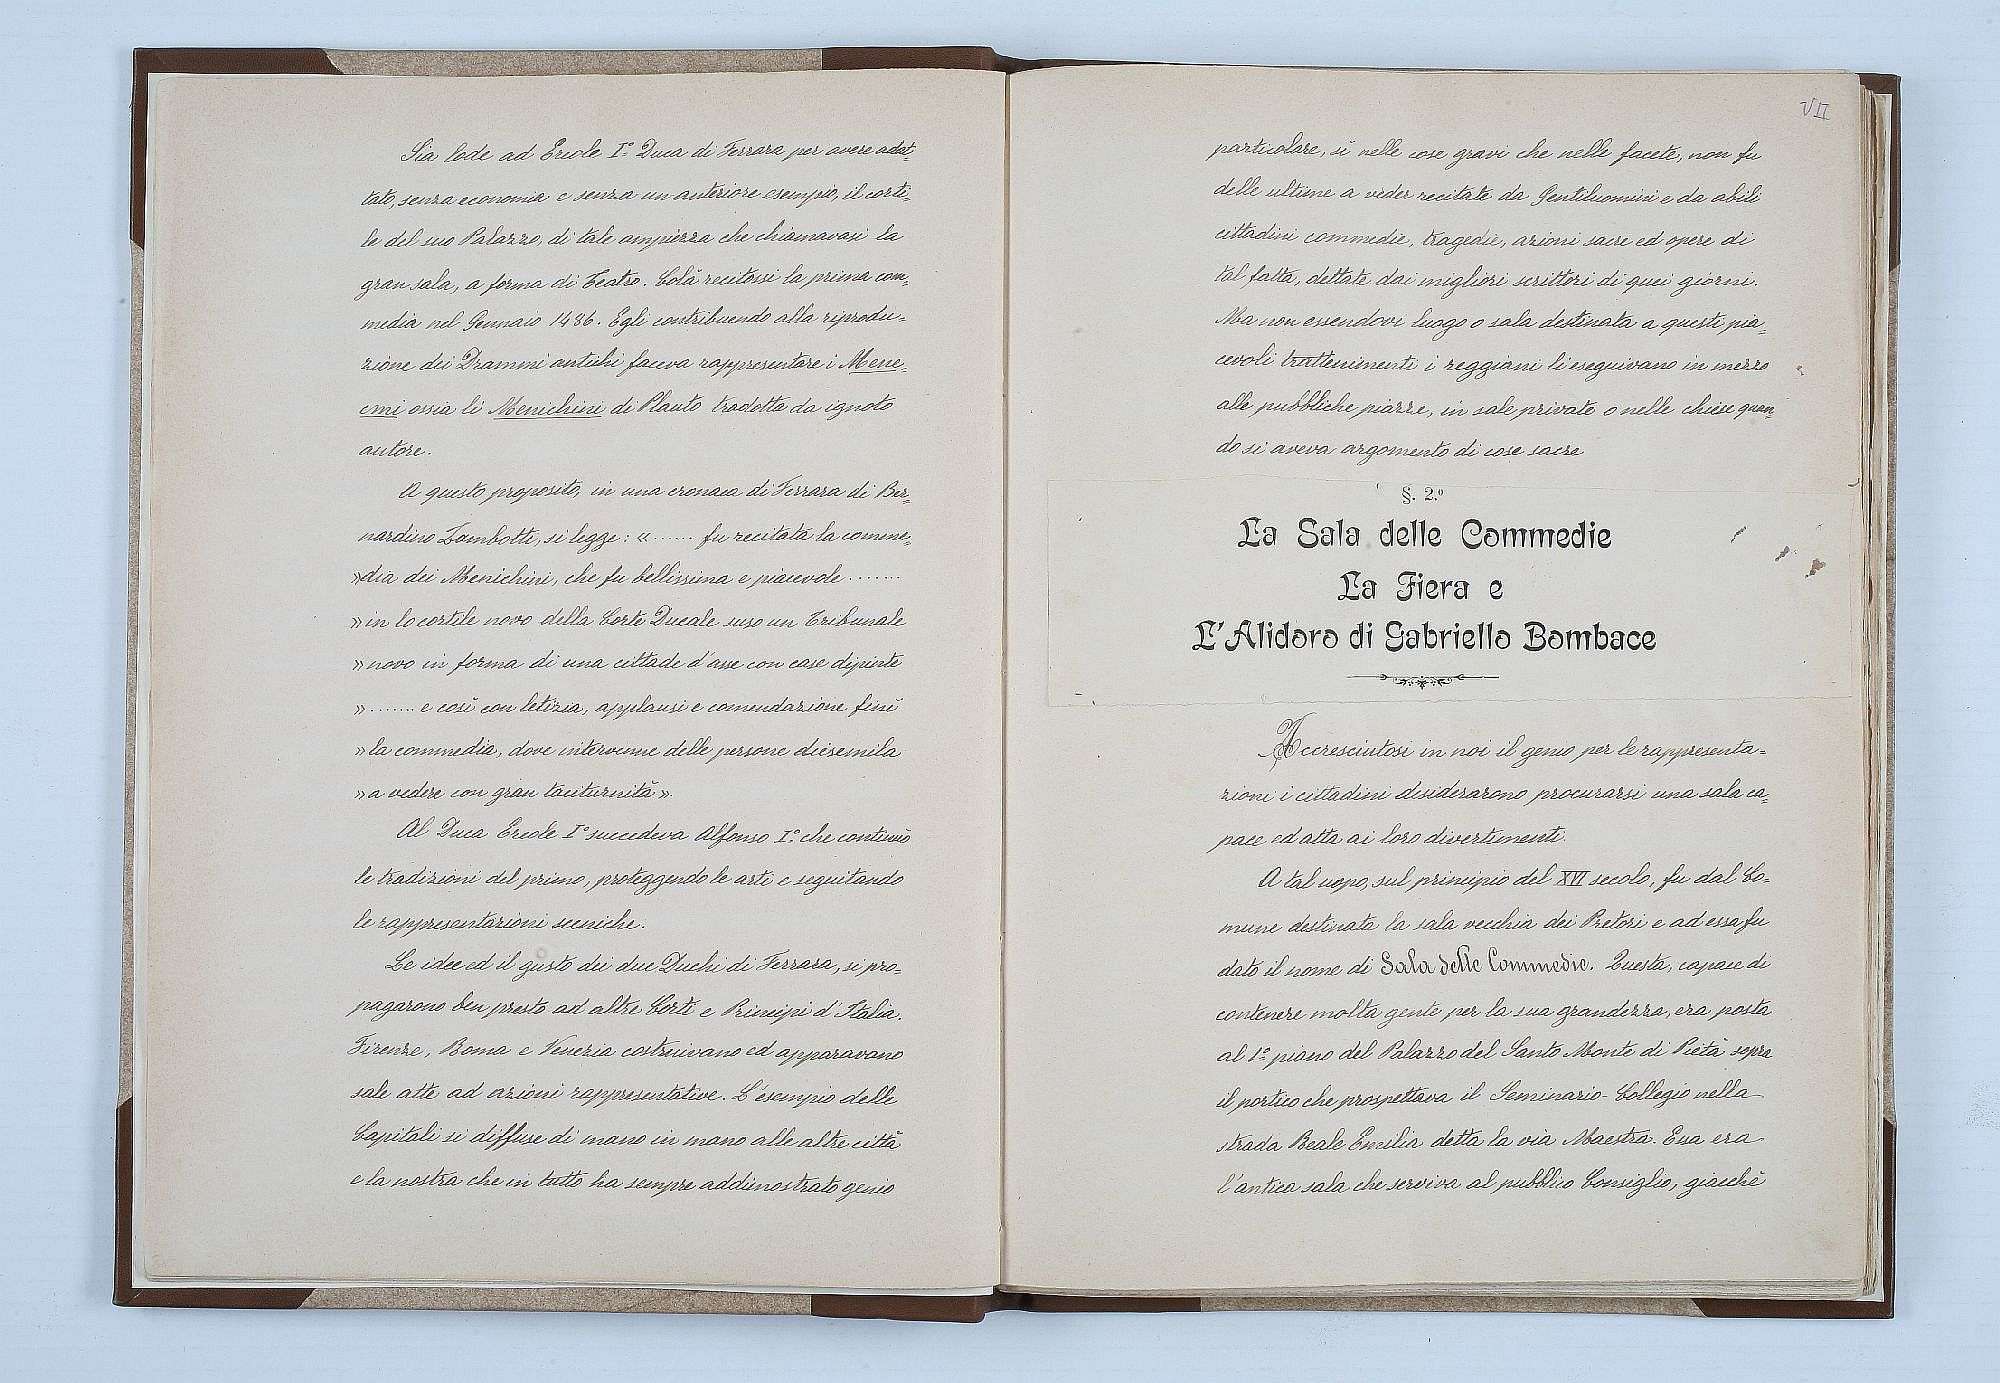 Sia lode ad Ercole I.º Duca di Ferrara per avere adat-
tato, senza economia e senza un anteriore esempio, il corti-
le del suo Palazzo, di tale ampiezza che chiamavasi la
gran sala, a forma di Teatro. Colà recitossi la prima com-
media nel Gennaio 1486. Egli contribuendo alla riprodu-
zione dei Drammi antichi faceva rappresentare i Mene-
cmi ossia li Menichini di Plauto tradotta da ignoto
autore.
A questo proposito, in una cronaca di Ferrara di Ber-
nardino Zambotti, si legge: « ...... fu recitata la comme-
» dia dei Menichini, che fu bellissima e piacevole .......
» in lo cortile novo della Corte Ducale suso un Tribunale
» novo in forma di una cittade d'asse con case dipinte
» ....... e così con letizia, applausi e comendazione finì
» la commedia, dove intervenne delle persone diesemila
» a vedere con gran taciturnità ».
Al Duca Ercole I.º succedeva Alfonso I.º che continuò
le tradizioni del primo, proteggendo le arti e seguitando
le rappresentazioni sceniche.
Le idee ed il gusto dei due Duchi di Ferrara, si pro-
pagarono ben presto ad altre Corti e Principi d'Italia.
Firenze, Roma e Venezia costruivano ed apparavano
sale atte ad azioni rappresentative. L'esempio delle
Capitali si diffuse di mano in mano alle altre città
e la nostra che in tutto ha sempre addimostrato genio
VII
particolare, sì nelle cose gravi che nelle facete, non fu
delle ultime a veder recitate da Gentiluomini e da abili
cittadini commedie, tragedie, azioni sacre ed opere di
tal fatta, dettate dai migliori scrittori di quei giorni.
Ma non essendovi luogo o sala destinata a questi pia-
cevoli trattenimenti i reggiani li eseguivano in mezzo
alle pubbliche piazze, in sale private o nelle chiese quan-
do si aveva argomento di cose sacre
§. 2.º
La Sala delle Commedie
La Fiera e
L'Alidoro di Gabriello Bombace
Accresciutosi in noi il genio per le rappresenta-
zioni i cittadini desiderarono procurarsi una sala ca-
pace ed atta ai loro divertimenti.
A tal uopo, sul principio del XVI secolo, fu dal Co-
mune destinata la sala vecchia dei Pretori e ad essa fu
dato il nome di Sala delle Commedie. Questa, capace di
contenere molta gente per la sua grandezza, era posta
al 1.º piano del Palazzo del Santo Monte di Pietà sopra
il portico che prospettava il Seminario-Collegio nella
strada Reale Emilia detta la via Maestra. Essa era
l'antica sala che serviva al pubblico Consiglio, giacchè